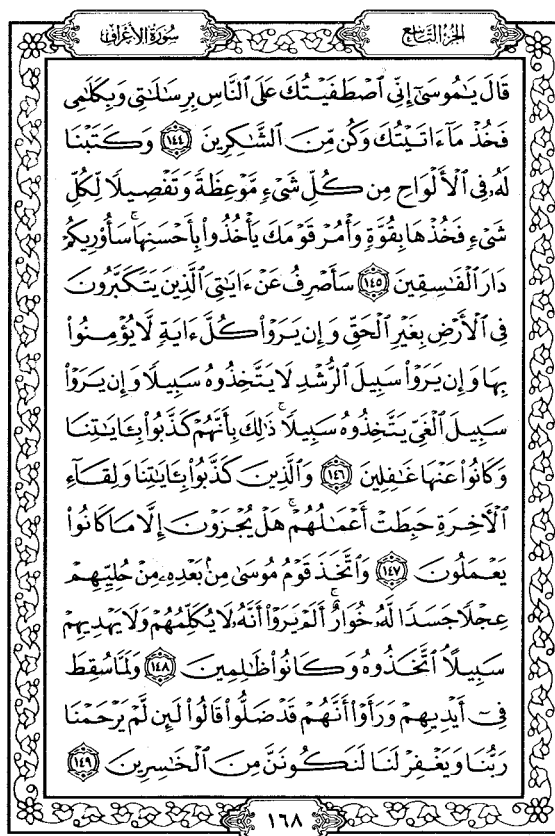 سُورَةُ الأَعْرَافِ
الجُزْءُ التَّاسِعُ
قَالَ يَٰمُوسَىٰٓ إِنِّي ٱصْطَفَيْتُكَ عَلَى ٱلنَّاسِ بِرِسَٰلَٰتِي وَبِكَلَٰمِي
فَخُذْ مَآ ءَاتَيْتُكَ وَكُن مِّنَ ٱلشَّٰكِرِينَ ١٤٤ وَكَتَبْنَا
لَهُۥ فِي ٱلْأَلْوَاحِ مِن كُلِّ شَىْءٍ مَّوْعِظَةً وَتَفْصِيلًا لِّكُلِّ
شَىْءٍ فَخُذْهَا بِقُوَّةٍ وَأْمُرْ قَوْمَكَ يَأْخُذُوا۟ بِأَحْسَنِهَا ۚ سَأُو۟رِيكُمْ
دَارَ ٱلْفَٰسِقِينَ ١٤٥ سَأَصْرِفُ عَنْ ءَايَٰتِيَ ٱلَّذِينَ يَتَكَبَّرُونَ
فِي ٱلْأَرْضِ بِغَيْرِ ٱلْحَقِّ وَإِن يَرَوْا۟ كُلَّ ءَايَةٍ لَّا يُؤْمِنُوا۟
بِهَا وَإِن يَرَوْا۟ سَبِيلَ ٱلرُّشْدِ لَا يَتَّخِذُوهُ سَبِيلًا وَإِن يَرَوْا۟
سَبِيلَ ٱلْغَيِّ يَتَّخِذُوهُ سَبِيلًا ۚ ذَٰلِكَ بِأَنَّهُمْ كَذَّبُوا۟ بِـَٔايَٰتِنَا
وَكَانُوا۟ عَنْهَا غَٰفِلِينَ ١٤٦ وَٱلَّذِينَ كَذَّبُوا۟ بِـَٔايَٰتِنَا وَلِقَآءِ
ٱلْأَخِرَةِ حَبِطَتْ أَعْمَٰلُهُمْ ۚ هَلْ يُجْزَوْنَ إِلَّا مَا كَانُوا۟
يَعْمَلُونَ ١٤٧ وَٱتَّخَذَ قَوْمُ مُوسَىٰ مِنۢ بَعْدِهِۦ مِنْ حُلِيِّهِمْ
عِجْلًا جَسَدًا لَّهُۥ خُوَارٌ ۚ أَلَمْ يَرَوْا۟ أَنَّهُۥ لَا يُكَلِّمُهُمْ وَلَا يَهْدِيهِمْ
سَبِيلًا ٱتَّخَذُوهُ وَكَانُوا۟ ظَٰلِمِينَ ١٤٨ وَلَمَّا سُقِطَ
فِىٓ أَيْدِيهِمْ وَرَأَوْا۟ أَنَّهُمْ قَدْ ضَلُّوا۟ قَالُوا۟ لَئِن لَّمْ يَرْحَمْنَا
رَبُّنَا وَيَغْفِرْ لَنَا لَنَكُونَنَّ مِنَ ٱلْخَٰسِرِينَ ١٤٩
١٦٨